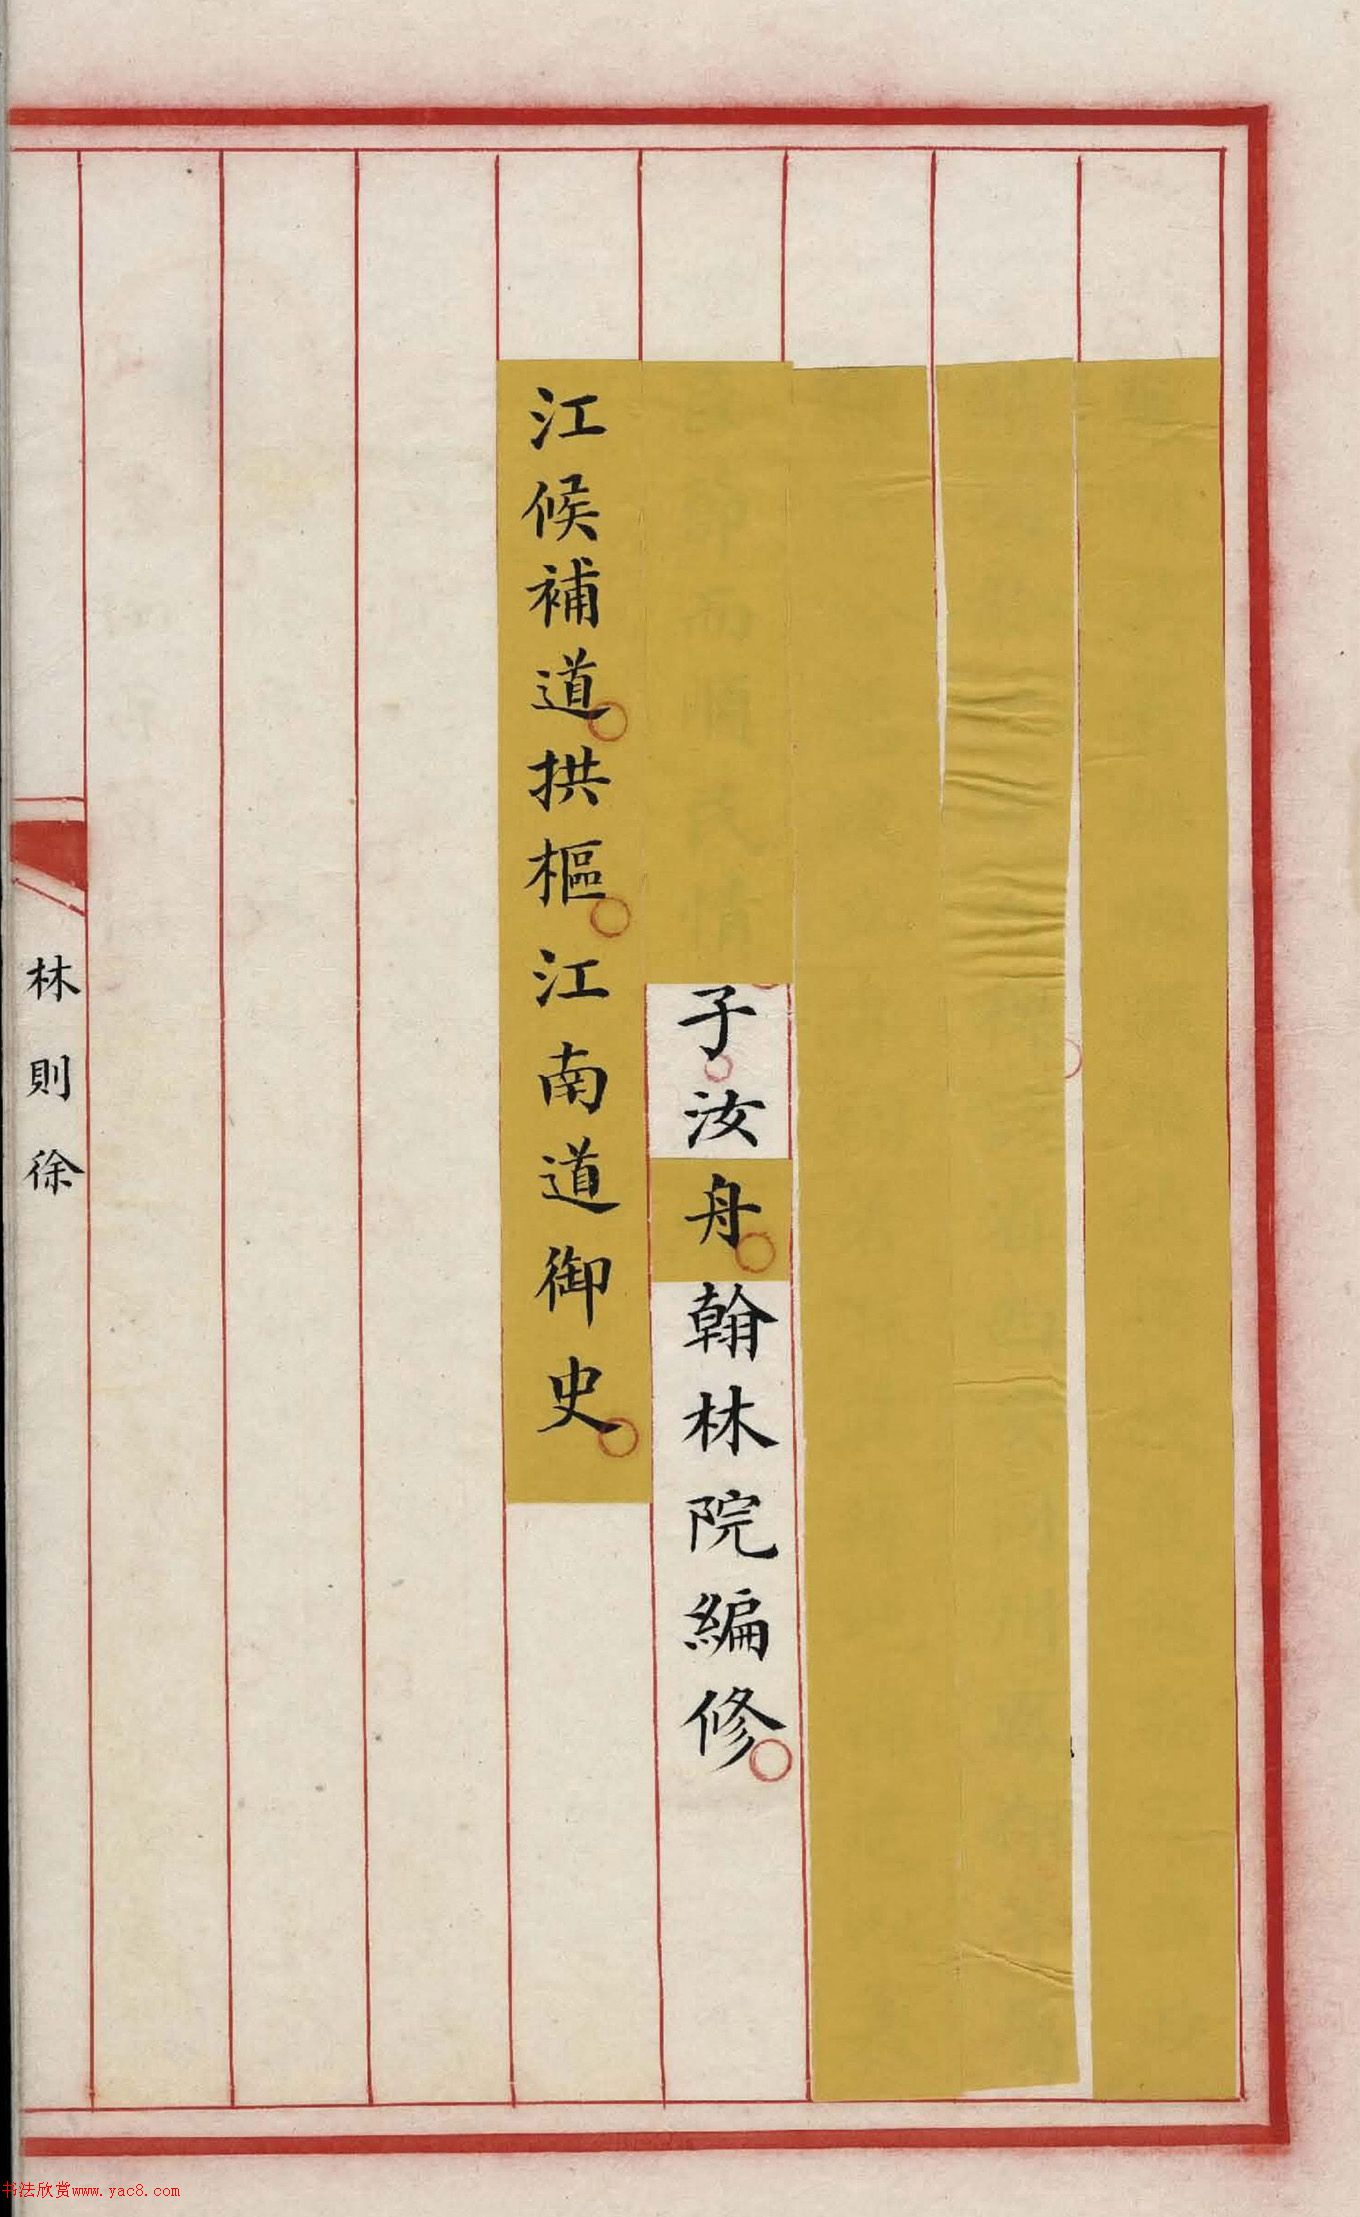 子汝舟翰林院編修
江候補道拱樞江南道御史
林則徐
书法欣赏www.yac8.com